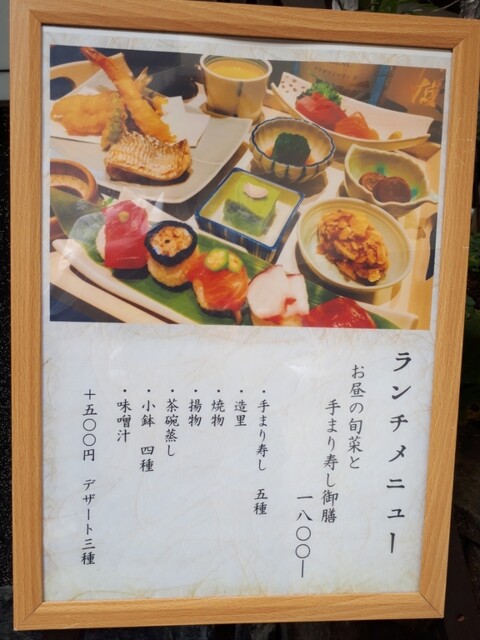 ランチメニュー
お昼の旬菜と
手まり寿し御膳
一八〇〇ー
・手まり寿し 五種
・造里
・焼物
・揚物
・茶碗蒸し
・小鉢 四種
・味噌汁
＋五〇〇円 デザート三種